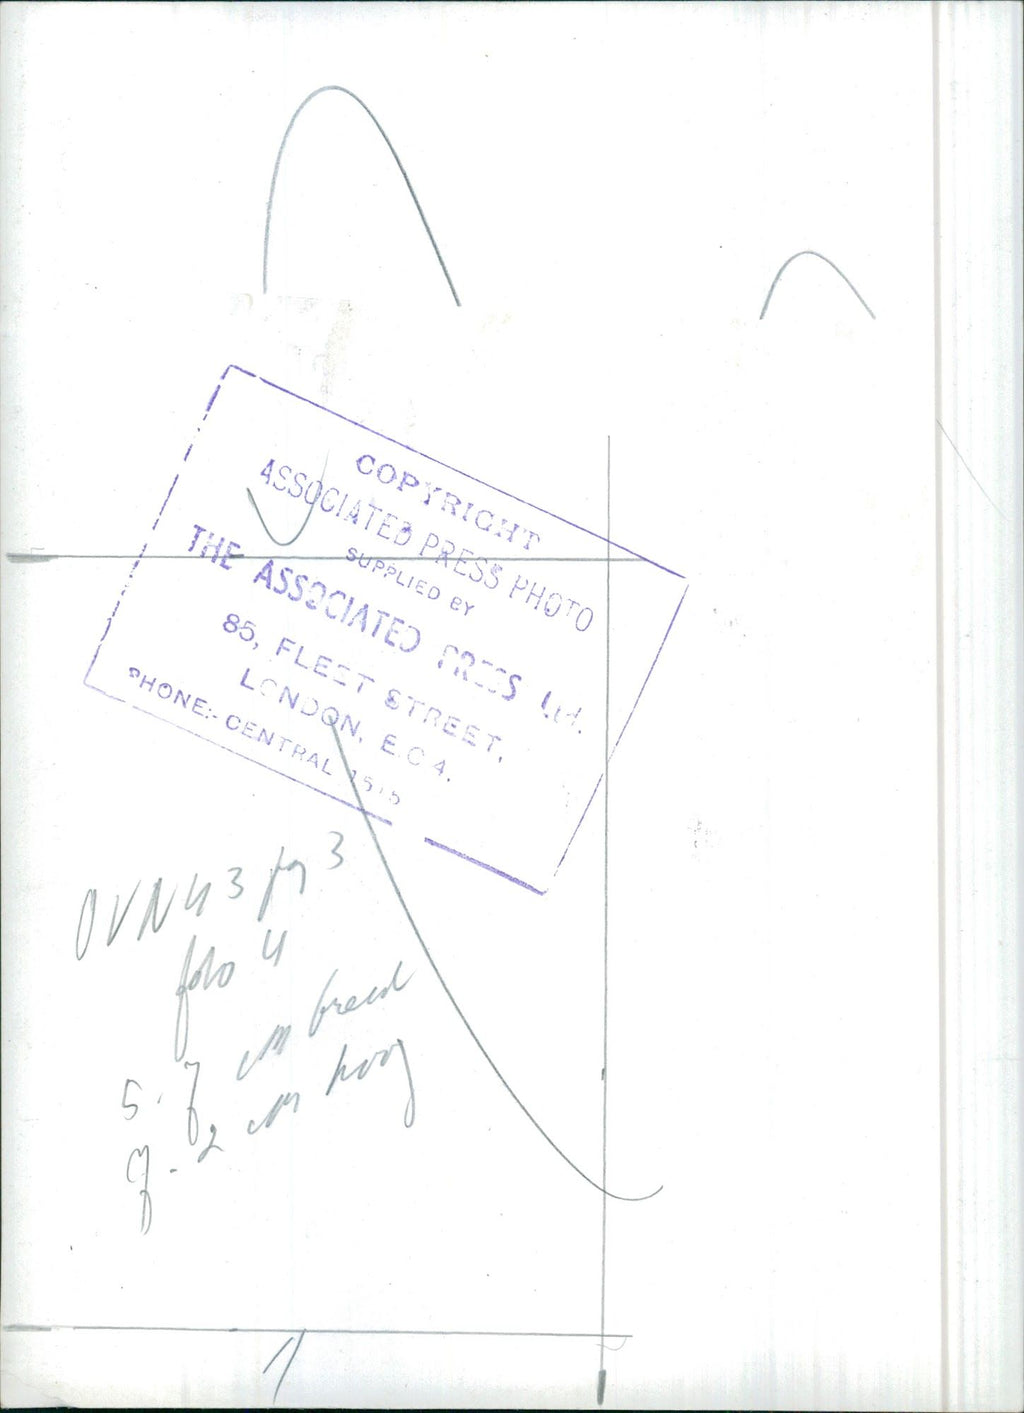 COPYRIGHT
ASSOCIATED PRESS PHOTO
SUPPLIED BY
THE ASSOCIATED PRESS Ltd.
85, FLEET STREET,
LONDON, E.C 4.
PHONE:- CENTRAL 1515
OVN 43 pag 3
foto 4
5. 7 cm breed
7. 2 cm hoog